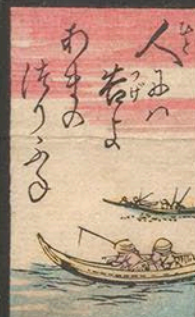 人には
告よ
あまの
つりふね